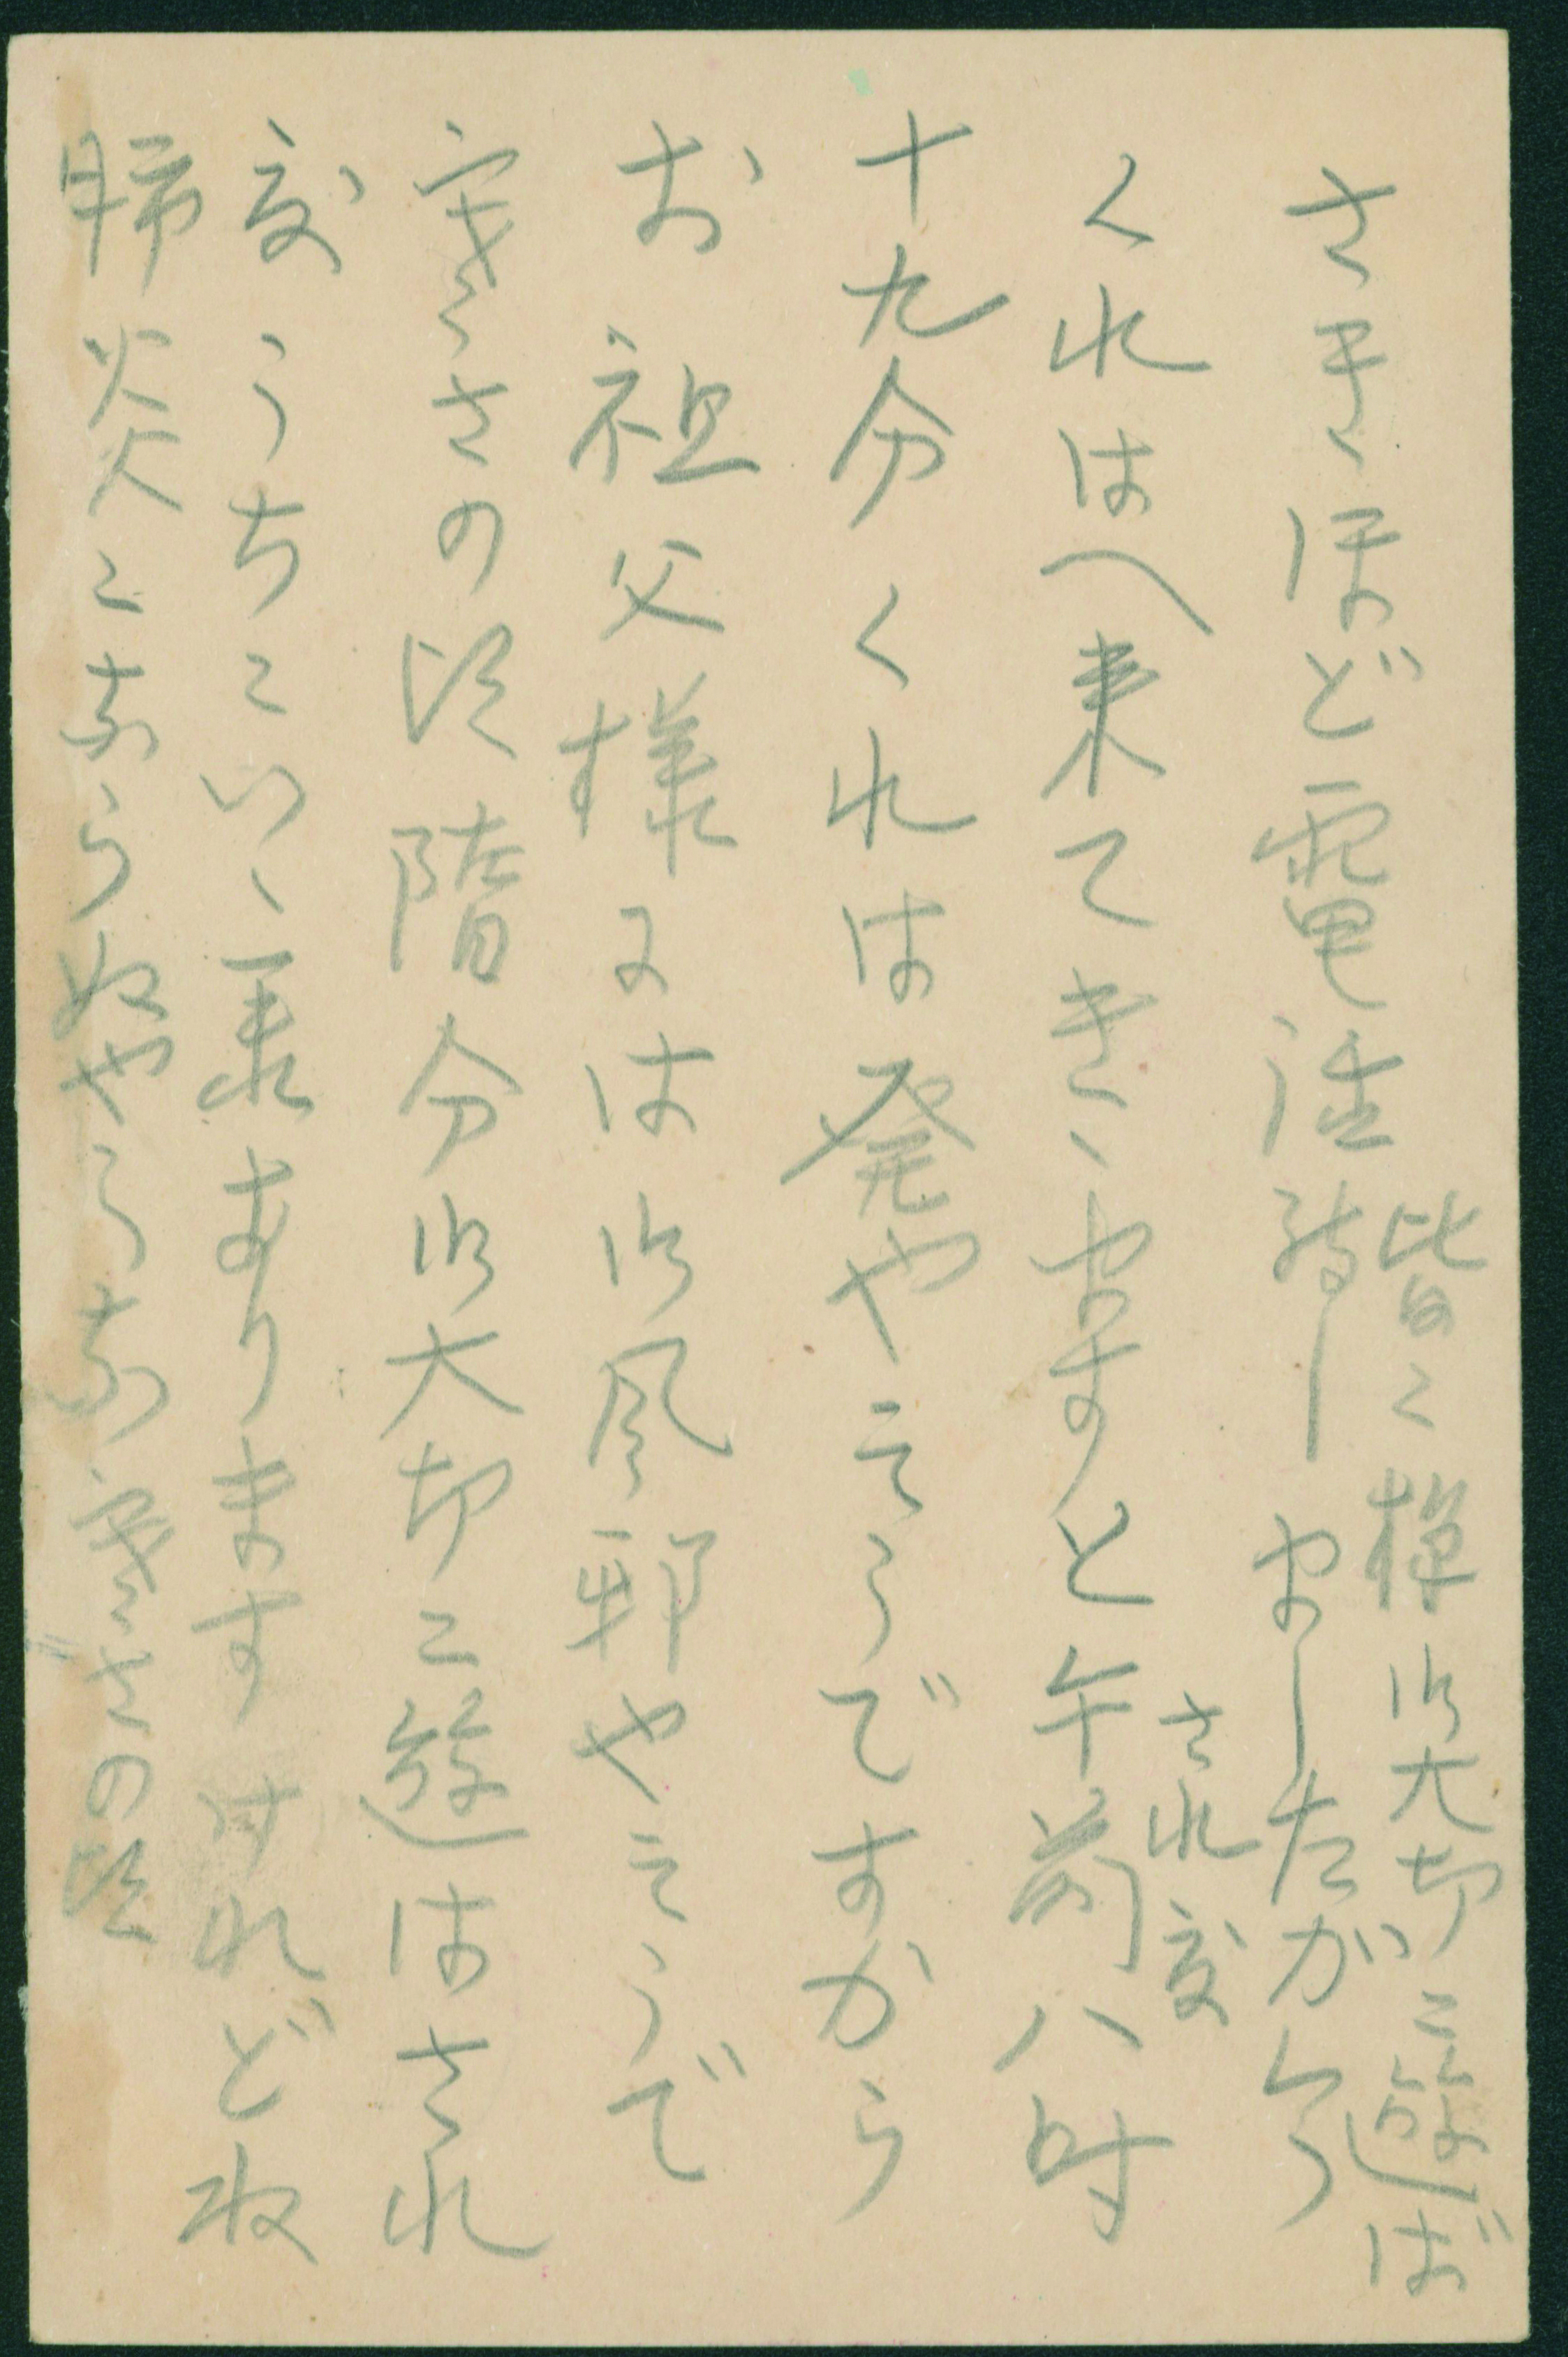 皆々様御大切に遊ば
され度
さきほど電話致しましたが今
くれはへ来てきゝますと午前八時
十九分くれは発やそうですから
お祖父様には御風邪やそうで
寒さの 階分御大切に遊はされ
度 うちにいゝ ありますけれど取
肺炎にならぬやうな寒さの